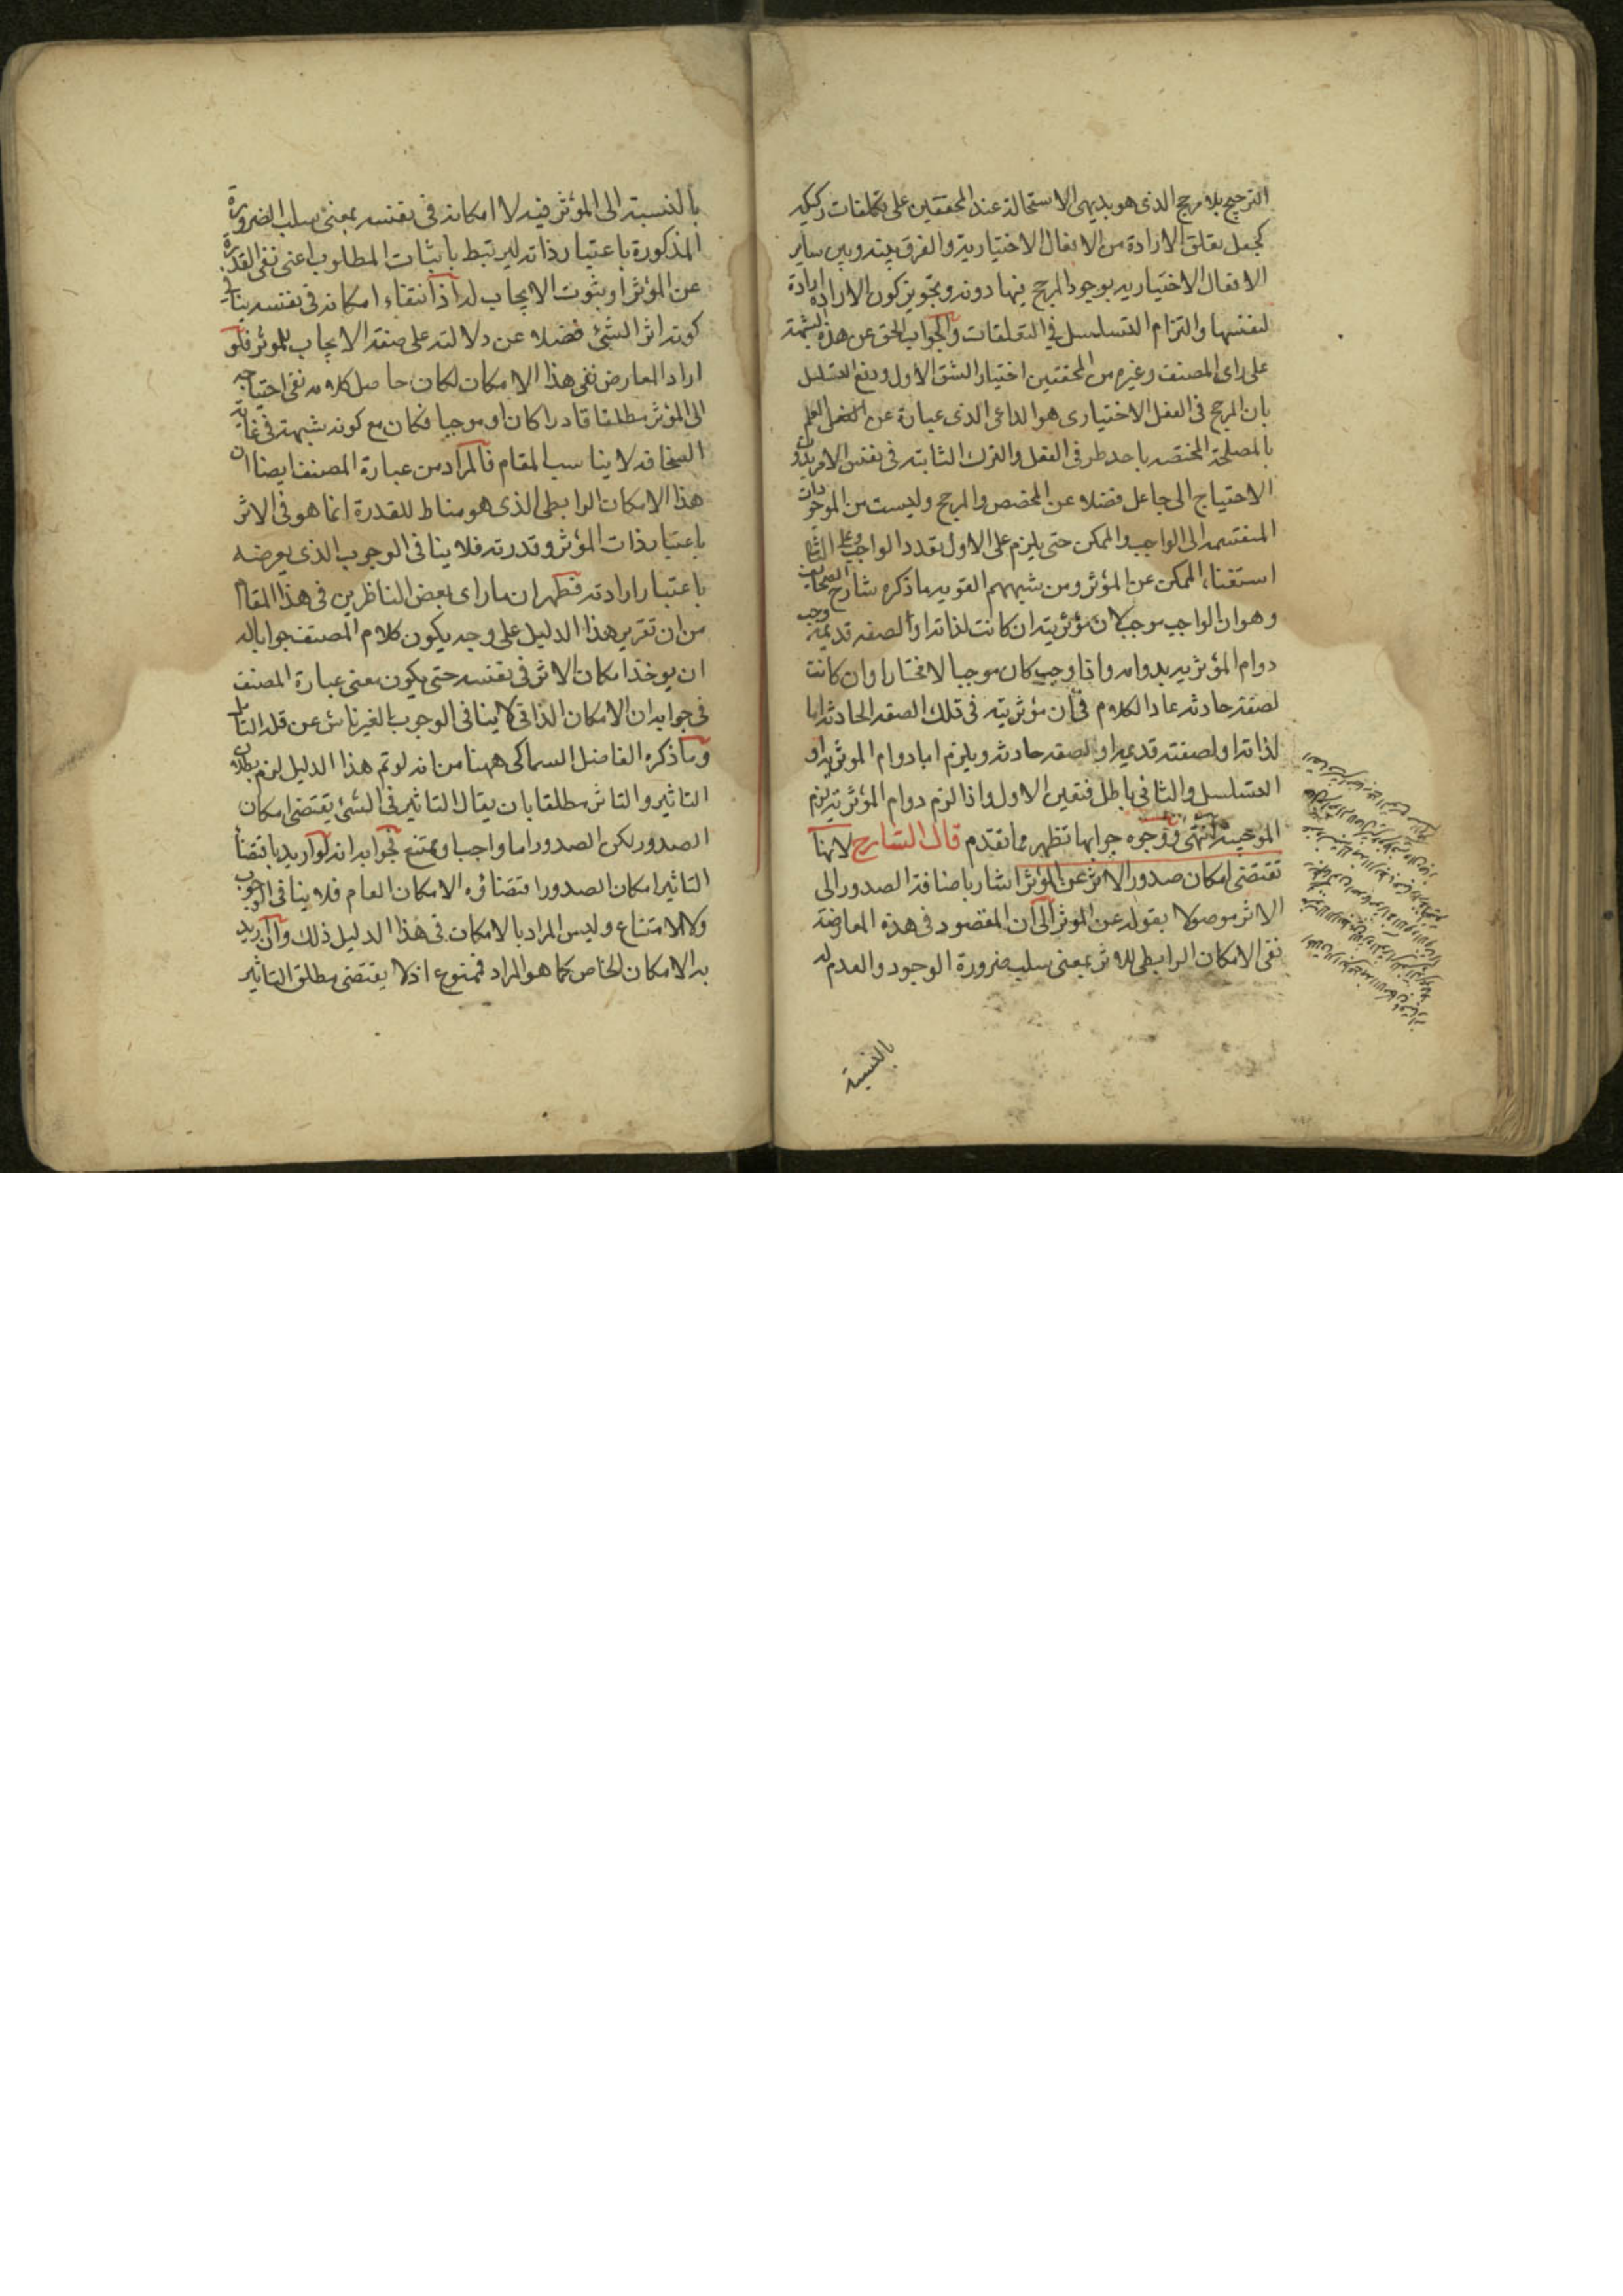 الترجيح بلا مرجح الذى هو بديهى الاستحالة عند المحققين على تكلفات ركيكه
كجعل تعلق الارادة من الافعال الاختيارية والفرق بينه وبين ساير
الافعال الاختياريه بوجود المرجح فيها دونه وتجويز كون الارادة ارادة
لنفسها والتزام التسلسل فى التعلقات والجواب الحق عن هذه الشبهة
على راى المصنف وغيره من المحققين اختيار الشق الاول ودفع التسلسل
بان المرجح فى الفعل الاختيارى هو الداعى الذى عبارة عن العلم
بالمصلحة المختصه باحد طرفى الفعل والترك الثابته فى نفس الامر بدون
الاحتياج الى جاعل فضلا عن المخصص والمرجح وليست من الموجودات
المنقسمه الى الواجب والممكن حتى يلزم على الاول تعدد الواجب وعلى الثانى
استغناء الممكن عن المؤثر ومن شبههم القويه ما ذكره شارح الصحايف
وهو ان الواجب موجب لان مؤثريته ان كانت لذاته او لصفه قديمة وجب
دوام المؤثريه بدوامه واذا وجب كان موجبا لا مختارا وان كانت
لصفة حادثه عاد الكلام فى ان مؤثريته فى تلك الصفه الحادثه اما
لذاته او لصفته قديمه او لصفه حادثه ويلزم اما دوام الموثريه او
التسلسل والثانى باطل فتعين الاول واذا لزم دوام المؤثرية لزم
الموجبية انتهى ووجوه جوابها تظهر مما تقدم قال الشارح لانها
تقتضى امكان صدور الاثر عن المؤثر اشار باضافة الصدور الى
الاثر موصولا بقوله عن الموثر الى ان المقصود فى هذه المعارضة
نفى الامكان الرابطى للاثر بمعنى سلب ضرورة الوجود والعدم له
بالنسبة
بالنسبة الى المؤثر فيه لا امكانه فى نفسه بمعنى سلب الضرورة
المذكورة باعتبار ذاته ليرتبط باثبات المطلوب اعنى نفى القدرة
عن المؤثر او بثبوت الايجاب له اذ انتفاء امكانه فى نفسه ينافى
كونه اثر الشئ فضلا عن دلالته على صفة الايجاب للموثر فلو
اراد المعارض نفى هذا الامكان لكان حاصل كلامه نفى احتياجه
الى المؤثر مطلقا قادرا كان او موجبا فكان مع كونه شبهة فى غاية
السخافه لا يناسب المقام فالمراد من عبارة المصنف ايضا ان
هذا الامكان الرابطى الذى هو مناط للقدرة انما هو فى الاثر
باعتبار ذات المؤثر وقدرته فلا ينافى الوجوب الذى يعرضه
باعتبار ارادته فظهر ان ما راى بعض الناظرين فى هذا المقام
من ان تقرير هذا الدليل على وجه يكون كلام المصنف جوابا له
ان يوخذ امكان الاثر فى نفسه حتى يكون معنى عبارة المصنف
فى جوابه ان الامكان الذاتى لا ينافى الوجوب بالغير ناش عن قلة التامل
وما ذكره الفاضل السماكى ههنا من انه لو تم هذا الدليل لزم بطلان
التاثير والتاثر مطلقا بان يقال التاثير فى الشئ يقتضى امكان
الصدور لكن الصدور اما واجب او ممتنع فجوابه انه لو اريد باقتضاء
التاثير امكان الصدور اقتضاؤه الامكان العام فلا ينافى الوجوب
ولا الامتناع وليس المراد بالامكان فى هذا الدليل ذلك وان اريد
به الامكان الخاص كما هو المراد فممنوع اذ لا يقتضى مطلق التاثير